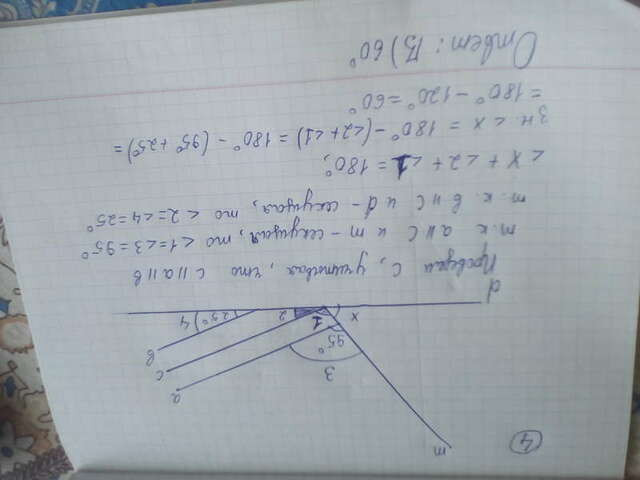 4
m
3
95°
a
c
b
1
x
2
25°
4
d
Проведём c, учитывая, что c || a || b
т.к a || c и m - секущая, то <1=<3=95°
т.к b || c и d - секущая, то <2=<4=25°
<x + <2 + <1 = 180°,
зн. <x = 180° - (<2+<1) = 180° - (95° + 25°) =
= 180° - 120° = 60°
Ответ: В) 60°